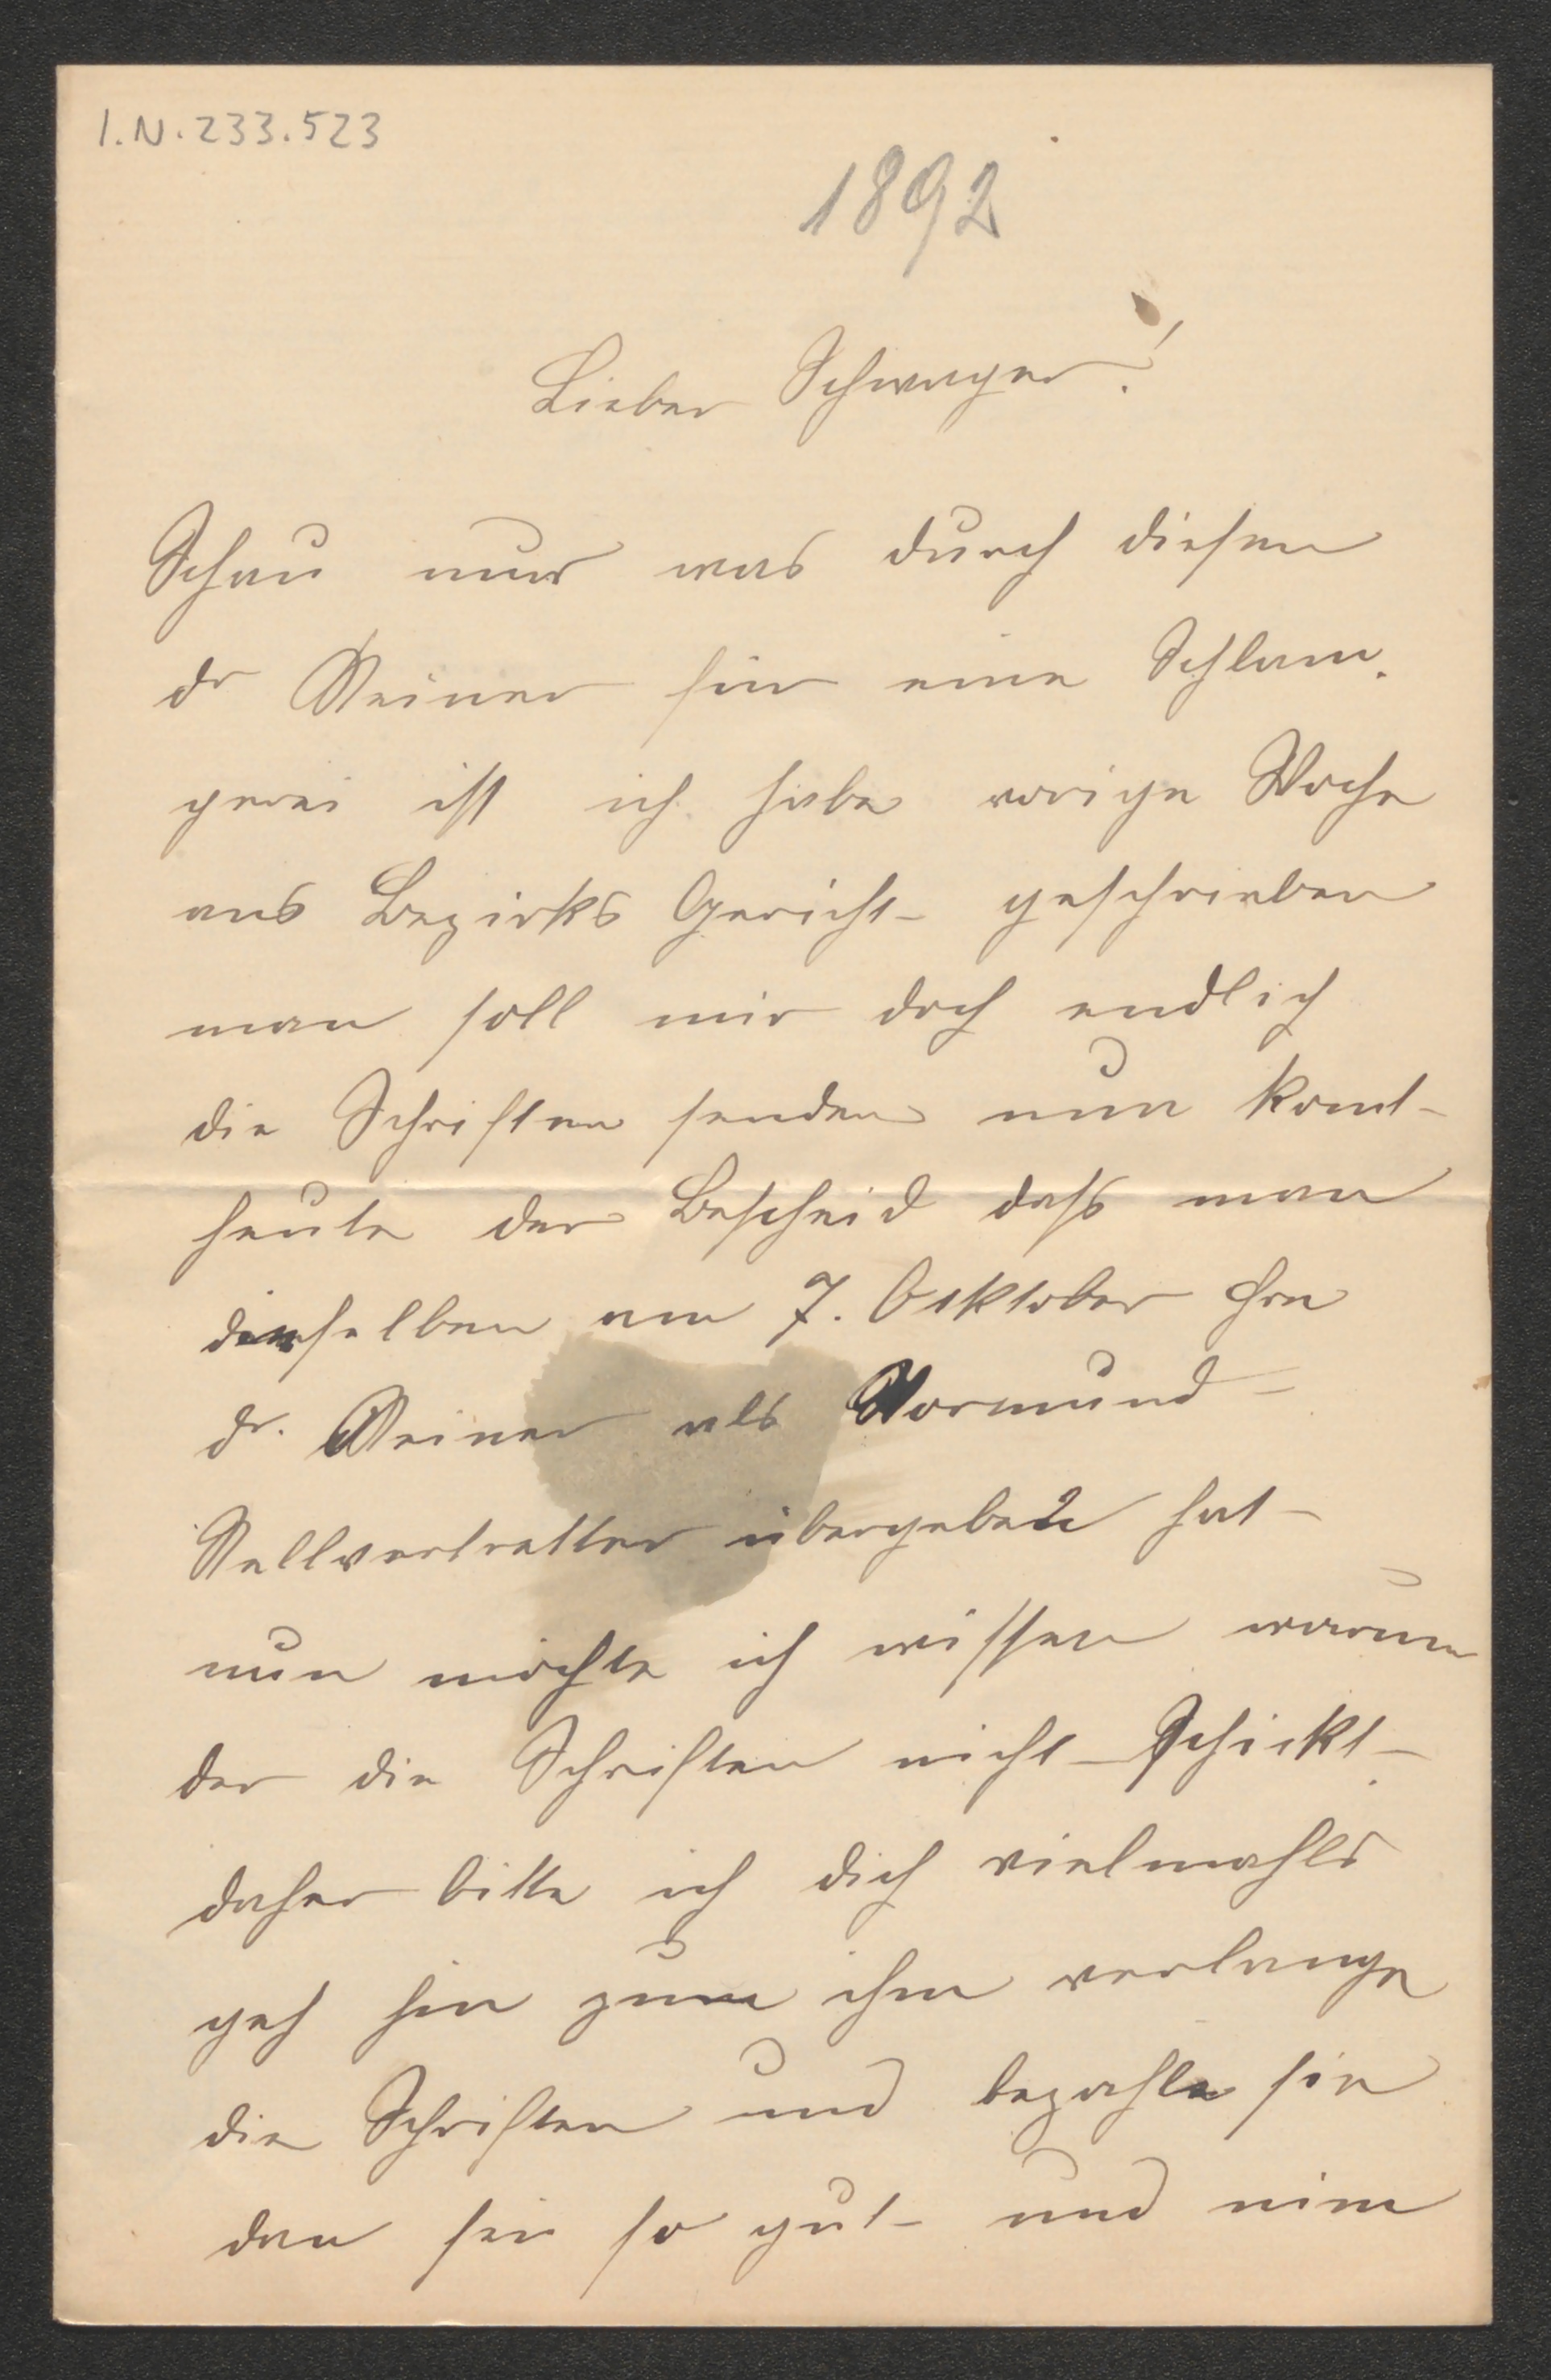 I.N. 233.523
1892
Lieber Schwager!
Schau nur was durch diesen
dr Steiner für eine Schlam-
perei ist ich habe vorige Woche
ans Bezirks Gericht geschrieben
man soll mir doch endlich
die Schriften senden nun komt
heute der Bescheid dass man
dieselben am 7. Ocktober Hrn
dr. Steiner als Vormund-
Stellvertretter übergeben hat
nun möchte ich wissen warum
der die Schriften nicht Schickt
daher bitte ich dich vielmahls
geh hin zum ihm verlange
die Schriften und bezahle sie
dan sei so gut und nim